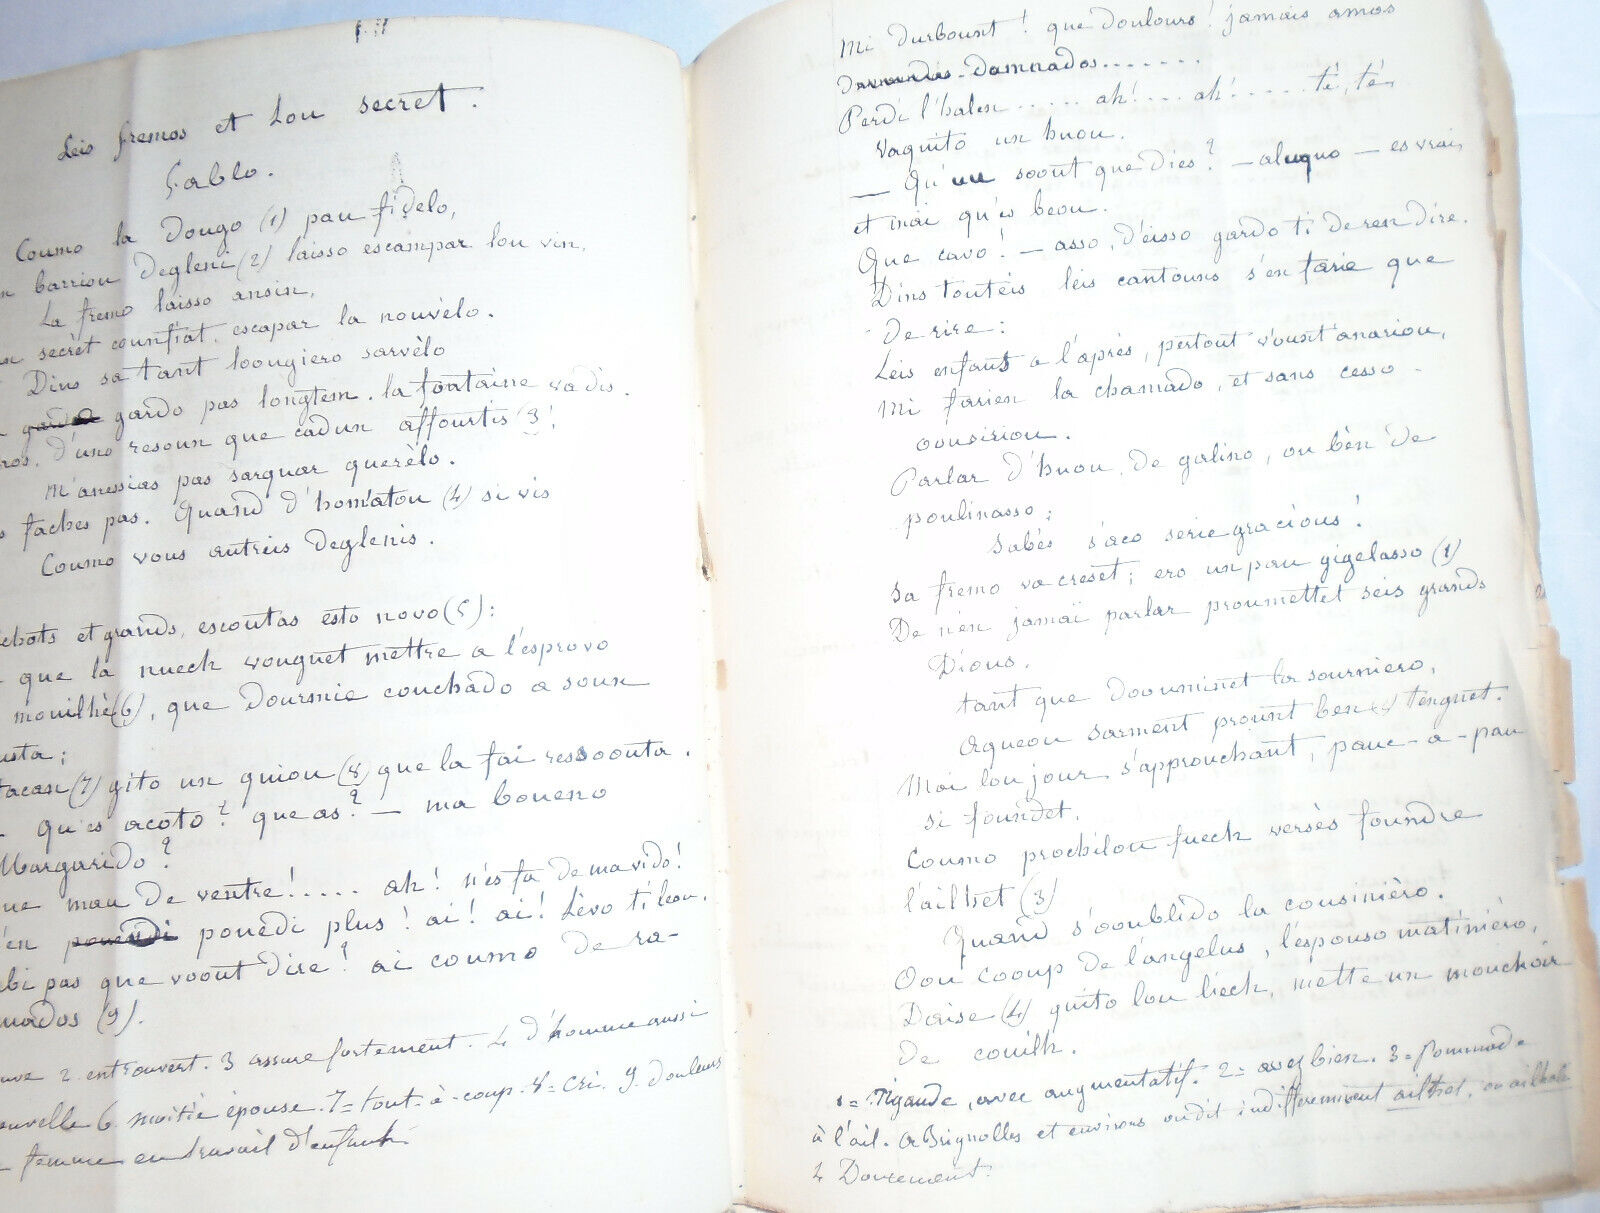 Leis fremos et Lou secret.
Fablo.
Coumo la Dougo (1) pau fidelo,
barriou degleni (2) laisso escampar lou vin,
La fremo laisso ansin,
secrèt counfiat, escapar la nouvèlo.
Dins sa tant lougiero sarvèlo
gardo gardo pas longtem. la fontaine va dis.
d'uno resoun que cadun affourtis (3)!
M'anessias pas sarquar querèlo.
faches pas. Quand d'hom'atou (4) si vis
Coumo vous autreis deglenis.
chots et grands, escoutas esto novo (5):
que la nuech vouguet mettre a l'esprovo
mouilhè (6), que dourmie couchado a soun
usta;
tacan (7) gito un quiou (8) que la fai ressoouta.
Qu'es acoto? que as? — ma boueno
Margarido?
mau de ventre!.... ah! n'es fa de ma vido!
'en pouedi pouèdi plus! ai! ai! Lèvo ti leou.
bi pas que voout dire? ai coumo de ra-
mados (9).
uve 2. entrouvert. 3 assure fortement. 4 d'homme aussi
ouvelle 6. moitié épouse. 7 = tout-à-coup. 8 = cri. 9. douleurs
femme en travail d'enfant.
Mi durbount! que doulours! jamais amos
damnados.......
Perdi l'halen..... ah!.... ah!..... tè, tè,
vaquito un huou.
— Qu'uu soout que dies? — aluquo — es vrai,
et mai qu'es beou.
Que cavo! — asso, d'eisso gardo ti de ren dire.
Dins touteis leis cantouns s'en farie que
de rire:
Leis enfans a l'après, pertout v'ount'anariou,
Mi farien la chamado, et sans cesso
oousiriou.
Parlar d'huou, de galino, ou bèn de
poulinasso;
Sabès s'aco serie gracious!
Sa fremo va creset; ero un pau gigelasso (1)
De n'en jamaï parlar proumettet seis grands
Dious.
tant que doouminet la sourniero,
Aqueou sarment prount ben tenguet.
Mai lou jour s'approuchant, pauc-a-pau
si foundet,
Coumo prochi lou fuech versès foundre
l'ailhet (3)
Quand s'ooublido la cousinièro.
Oou cooup de l'angelus, l'espouso matinièro,
Daise (4) quito lou liech, mette un mouchoir
de couilh.
1 = Nigaude, avec augmentatif. 2 = avez bien. 3 = Pommade
à l'ail. A Brignolles et environs on dit indifféremment ailhet, ou ailholi
4 Doucement.